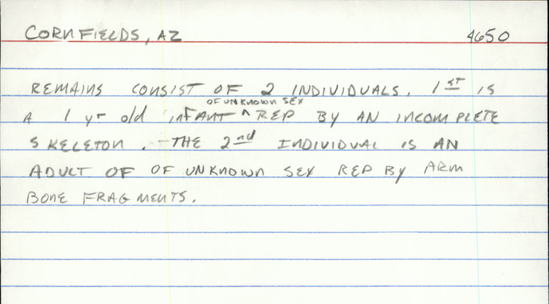 CORNFIELDS, AZ 4650
REMAINS CONSIST OF 2 INDIVIDUALS. 1ST IS
OF UNKNOWN SEX
A 1 yr old infant ^ REP BY AN INCOMPLETE
SKELETON. THE 2nd INDIVIDUAL IS AN
ADULT OF OF UNKNOWN SEX REP BY ARM
BONE FRAGMENTS.